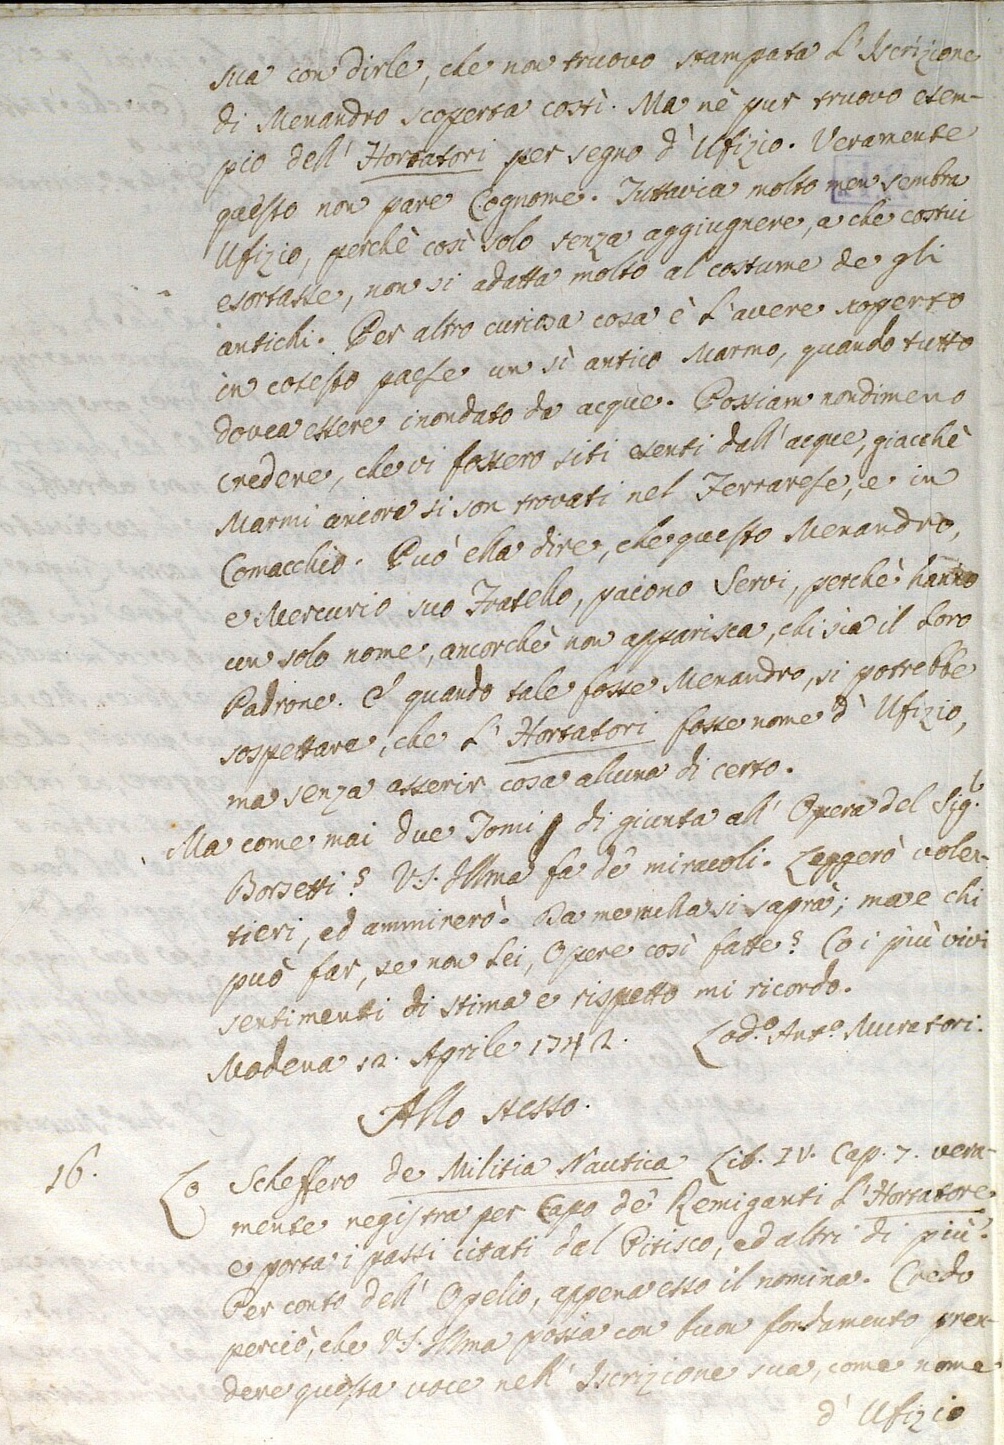 sua con dirle, che non truovo stampata l'Iscrizione
di Menandro scoperta costì. Ma nè pur truovo esem-
pio dell'Hortatori per segno d'Ufizio. Veramente
questo non pare Cognome. Tuttavia molto men sembra
Ufizio, perchè così solo senza aggiugnere, a che costui
esortasse, non si adatta molto al costume de gli
antichi. Per altro curiosa cosa è l'avere scoperto
in cotesto paese un sì antico Marmo, quando tutto
dovea essere inondato da acque. Possiam nondimeno
credere, che vi fossero siti esenti dall'acque, giacchè
Marmi ancora si son trovati nel Ferrarese, e in
Comacchio. Può ella dire, che questo Menandro,
e Mercurio suo Fratello, paiono Servi, perchè hanno
un solo nome, ancorchè non apparisca, chi sia il loro
Padrone. E quando tale fosse Menandro, si potrebbe
sospettare, che l'Hortatori fosse nome d'Ufizio,
ma senza asserir cosa alcuna di certo.
Ma come mai due Tomi di giunta all'Opera del Sig.r
Borsetti? V.S. Illma fa de' miracoli. Leggerò volen-
tieri, ed ammirerò. Da me nulla si saprà; ma e chi
può far, se non Lei, Opere così fatte? Co i più vivi
sentimenti di stima e rispetto mi ricordo.
Modena 12. Aprile 1742. Lod.o Ant.o Muratori.
Allo stesso.
16. Lo Scheffero de Militia Nautica Lib. IV. Cap. 7. vera-
mente registra per Capo de' Remiganti l'Hortatore
e porta i passi citati dal Pitisco, ed altri di più.
Per conto dell'Opelio, appena esso il nomina. Credo
perciò, che V.S. Illma possa con buon fondamento pren-
dere questa voce nell'Iscrizione sua, come nome
d'Ufizio